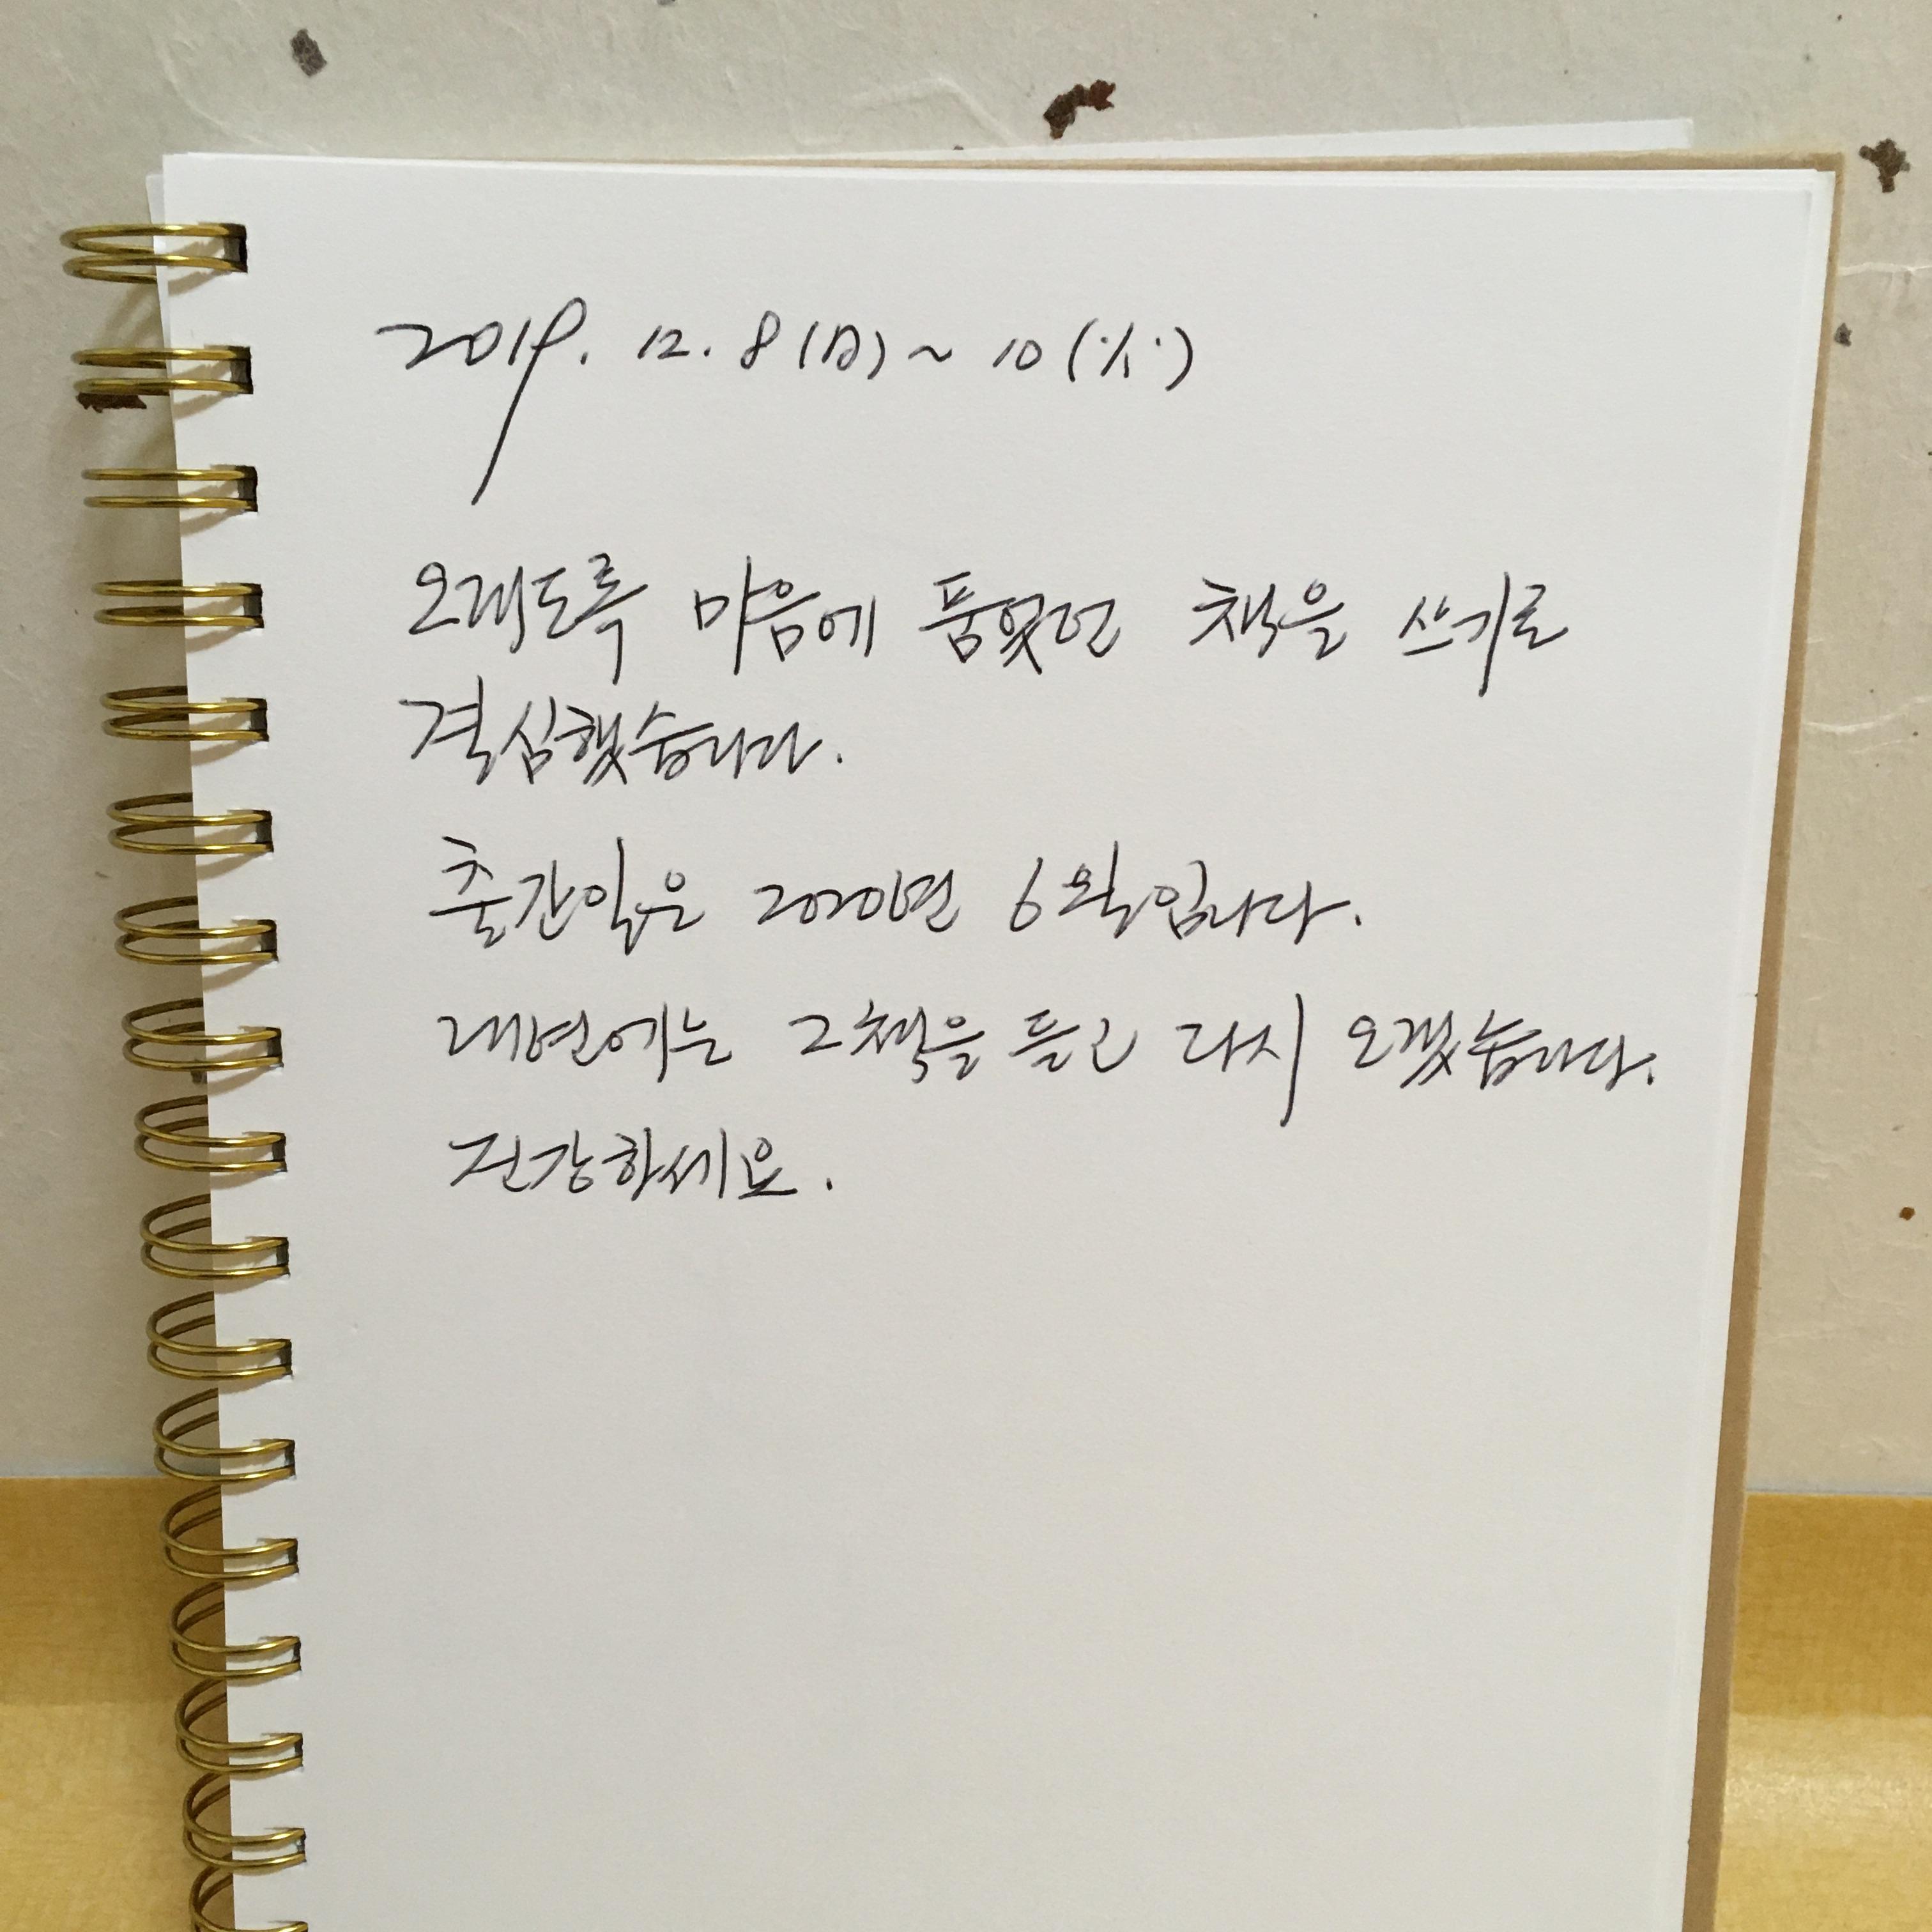 2019. 12. 8(日) ~ 10(火)
오래도록 마음에 품었던 책을 쓰기로
결심했습니다.
출간일은 2020년 6월입니다.
내년에는 그 책을 들고 다시 오겠습니다.
건강하세요.